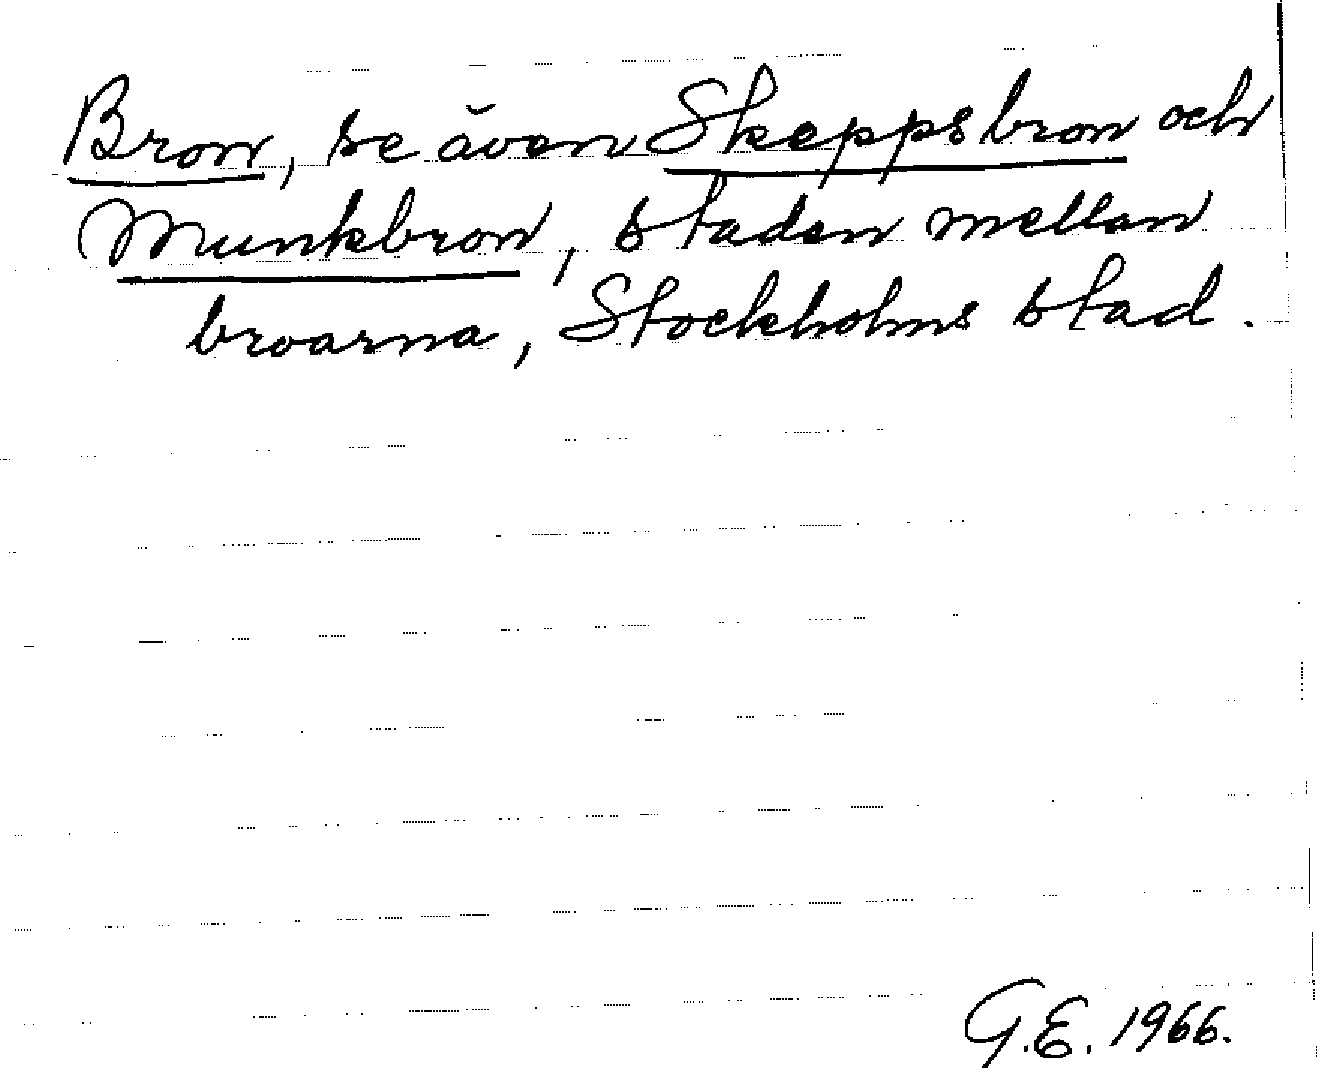 Bron, se även Skeppsbron och
Munkbron, staden mellan
broarna, Stockholms stad.
G.E. 1966.